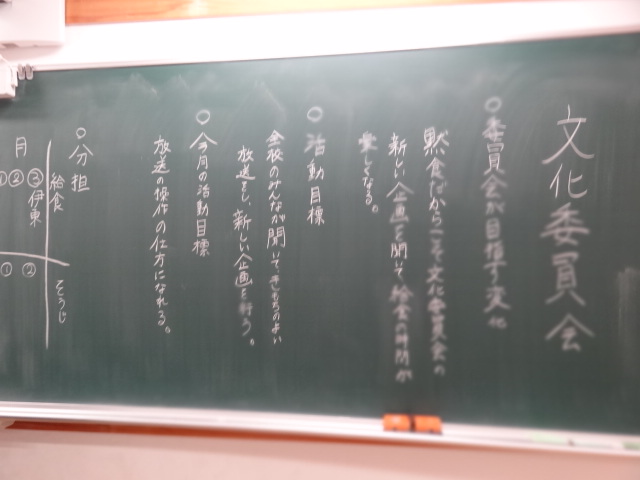 文化委員会
○委員会が目指す文化
黙食だからこそ文化委員会の
新しい企画を聞いて給食の時間が
楽しくなる。
○活動目標
全校のみんなが聞いて、きもちのよい
放送をし、新しい企画を行う。
○今月の活動目標
放送の操作の仕方になれる。
○分担
給食 そうじ
月
③伊東
②
①
② ①